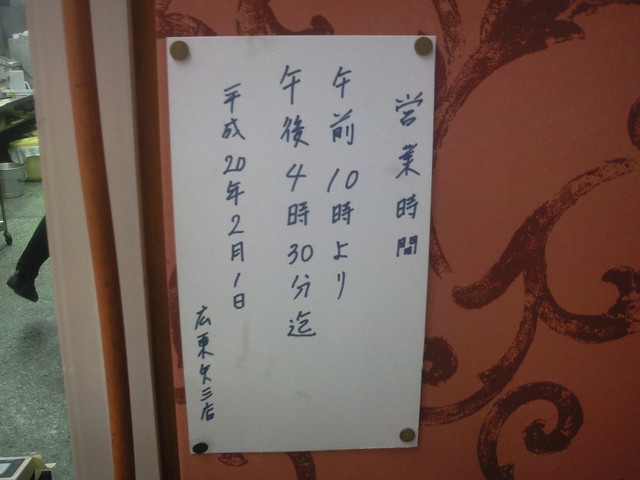 営業時間
午前10時より
午後4時30分迄
平成20年2月1日
広東矢三店